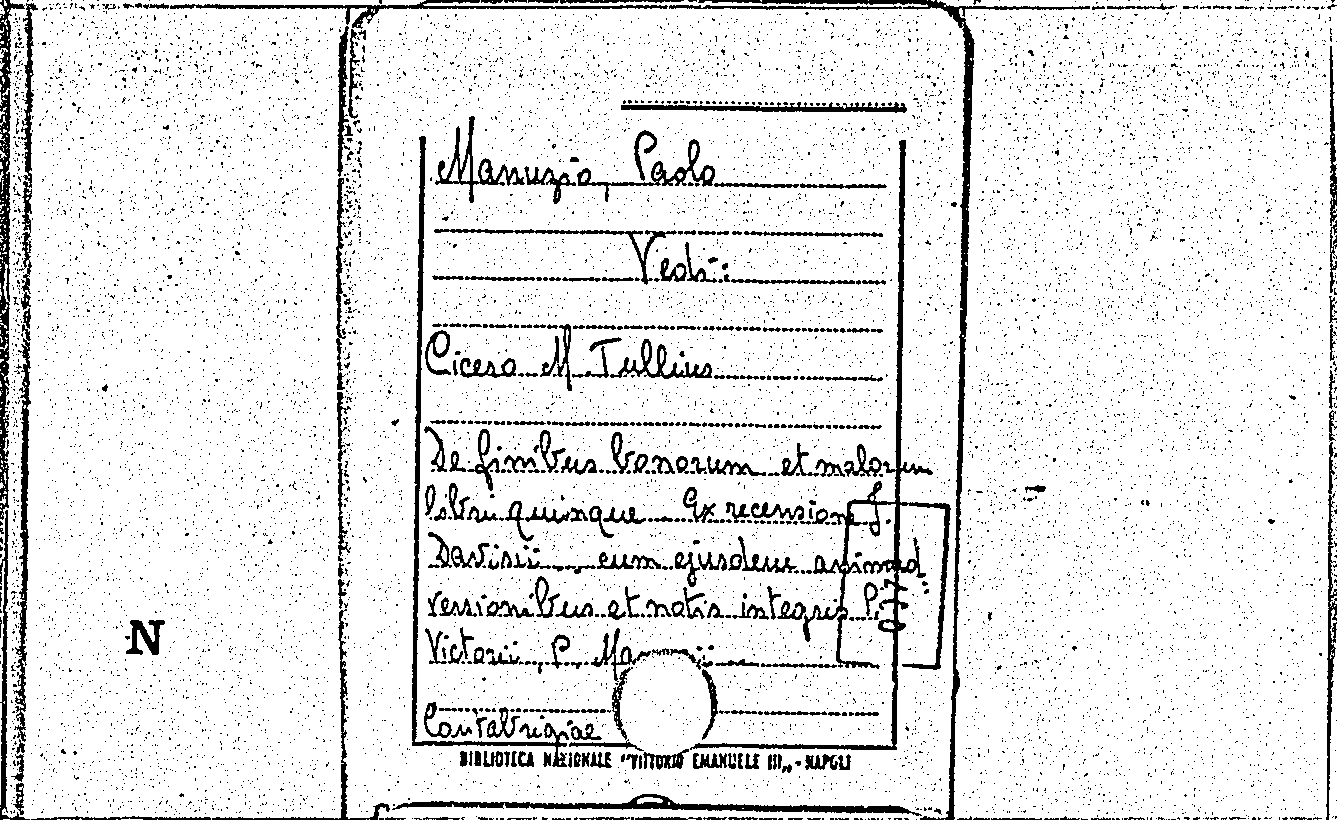 Manuzio, Paolo
Vedi:
Cicero M. Tullius
De finibus bonorum et malorum
libri quinque. Ex recensione J.
Davisii, cum ejusdem animad
versionibus et notis integris P.
Victorii, P.
Cantabrigiae
N
BIBLIOTECA NAZIONALE "VITTORIO EMANUELE III„ - NAPOLI